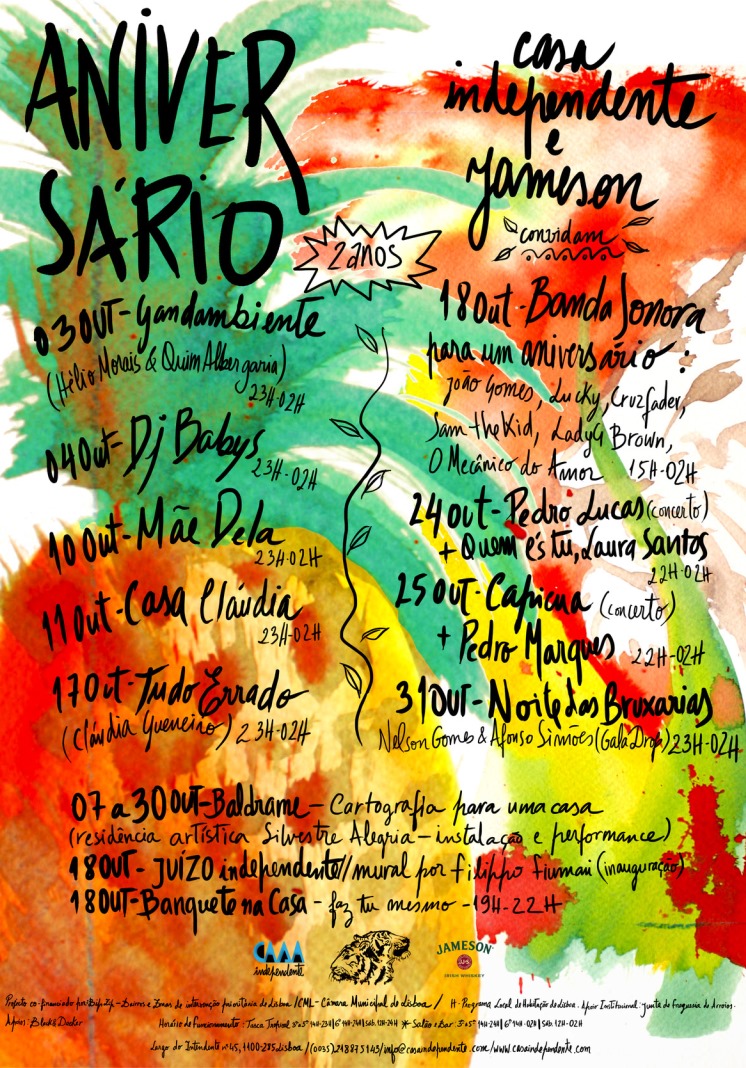 ANIVER
SÁRIO
2 anos
casa
independente
e
Jameson
convidam
03 OUT - Gandambiente
(Hélio Morais & Quim Albergaria)
23H-02H
04 Out - Dj Babys
23H-02H
10 Out - Mãe Dela
23H-02H
11 Out - Casa Cláudia
23H-02H
17 Out - Tudo Errado
(Cláudia Guerreiro) 23H-02H
18 Out - Banda Sonora
para um aniversário :
João Gomes, Lucky, Cruzfader,
Sam the Kid, Lady G Brown,
O Mecânico do Amor 15H-02H
24 out - Pedro Lucas (concerto)
+ Quem és tu, Laura Santos
22H-02H
25 OUT - Capicua (concerto)
+ Pedro Marques 22H-02H
31 OUT - Noite das Bruxarias
Nelson Gomes & Afonso Simões (Gala Drop) 23H-02H
07 a 30 OUT - Baldrame - Cartografia para uma casa
(residência artística Silvestre Alegria - instalação e performance)
18 OUT - JUÍZO independente // mural por filippo fiumani (inauguração)
18 OUT - Banquete na Casa - faz tu mesmo - 19H-22H
CASA
independente
JAMESON
IRISH WHISKEY
Projecto co-financiado por: Bip/Zip - Bairros e Zonas de intervenção prioritária de Lisboa / CML - Câmara Municipal de Lisboa / H - Programa Local de Habitação de Lisboa. Apoio Institucional: Junta de Freguesia de Arroios.
Apoios: Black & Decker
Horário de Funcionamento: Tasca Tropical 3ª a 5ª 14H-23H | 6ª 14H-02H | Sáb. 12H-24H * Salão e Bar: 3ª a 5ª 14H-24H | 6ª 14H-02H | Sáb. 12H-02H
Largo do Intendente nº 45, 1100-285 Lisboa / (00351) 218875143 / info@casaindependente.com / www.casaindependente.com